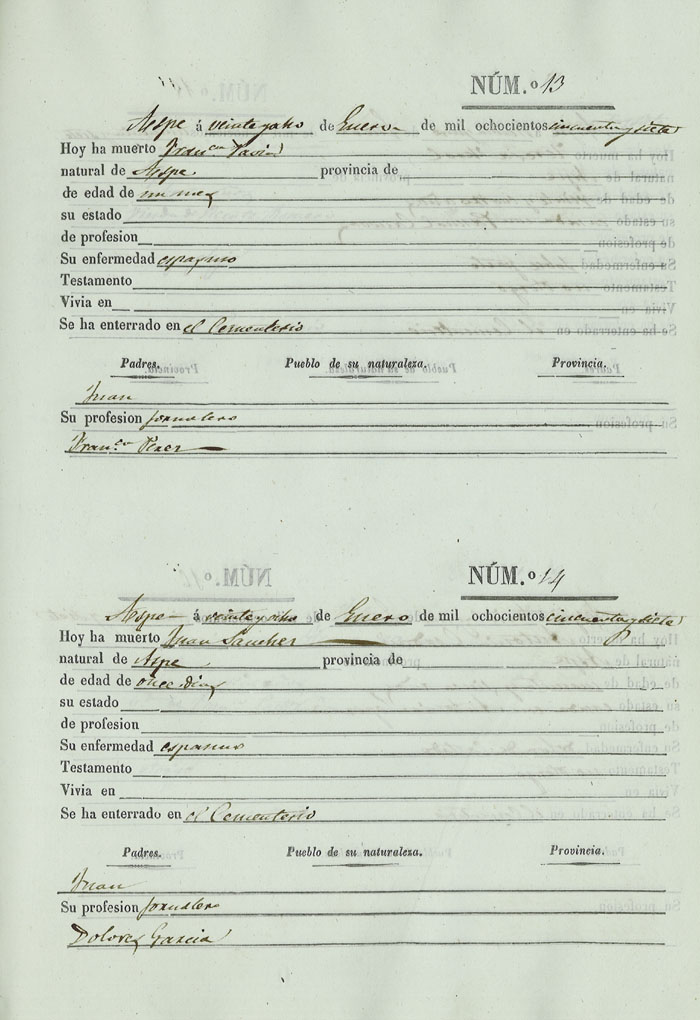 NÚM.º 13
Aspe á veinte y ocho de Enero de mil ochocientos cincuenta y siete
Hoy ha muerto Fran.ca
natural de Aspe. provincia de
de edad de un mes
su estado
de profesion
Su enfermedad espasmo
Testamento
Vivia en
Se ha enterrado en el Cementerio
Padres. Pueblo de su naturaleza. Provincia.
Juan
Su profesion jornalero
Fran.ca Perez
NÚM.º 14
Aspe á veinte y ocho de Enero de mil ochocientos cincuenta y siete
Hoy ha muerto Juan Sanchez
natural de Aspe provincia de
de edad de once dias
su estado
de profesion
Su enfermedad espasmo
Testamento
Vivia en
Se ha enterrado en el Cementerio
Padres. Pueblo de su naturaleza. Provincia.
Juan
Su profesion jornalero
Dolores Garcia